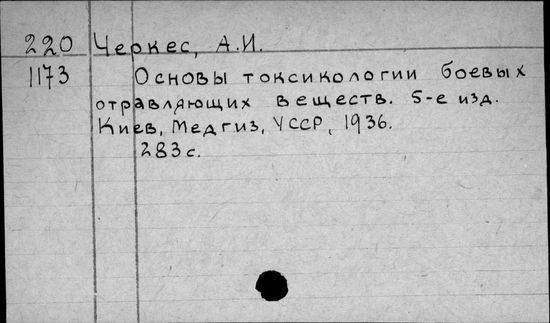 220 Черкес, А.И.
1173 Основы токсикологии боевых
отравляющих веществ. 5-е изд.
Киев, Медгиз, УССР, 1936.
283 с.